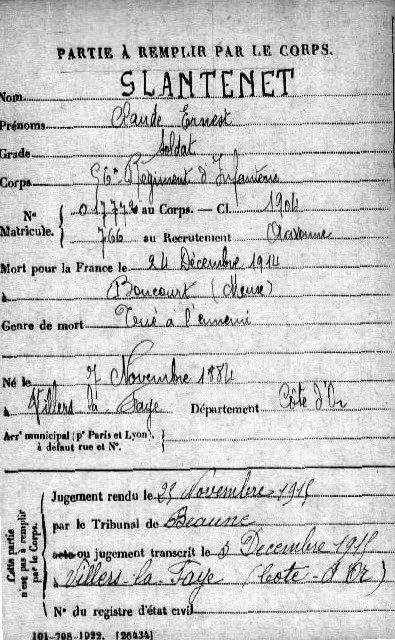 PARTIE À REMPLIR PAR LE CORPS.
Nom SLANTENET
Prénoms Claude Ernest
Grade Soldat
Corps 56e Régiment d'Infanterie
N° Matricule. { 017772 au Corps. — Cl. 1904
766 au Recrutement
Mort pour la France le 24 Décembre 1914
à Boncourt (Meuse)
Genre de mort Tué à l'ennemi
Né le 7 Novembre 1884
à Villers la Faye Département Côte d'Or
Arrt municipal (pr Paris et Lyon),
à défaut rue et N°.
Cette partie n'est pas à remplir par le Corps.
Jugement rendu le 25 Novembre 1915
par le Tribunal de Beaune
acte ou jugement transcrit le 5 Décembre 1915
à Villers-la-Faye (Côte-d'Or)
N° du registre d'état civil
101-708-1922. [26434]